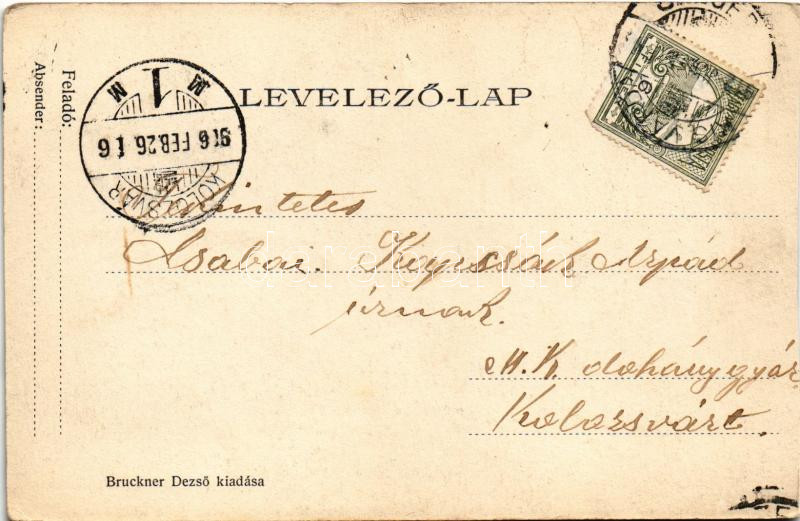 LEVELEZŐ-LAP
Feladó:
Absender:
M 1 M
916 FEB.26. 1 6
KOLOZSVÁR
Tekintetes
Csabai. Kopcsák Árpád
úrnak.
M.K. dohánygyár
Kolozsvárt.
Bruckner Dezső kiadása
darabanth